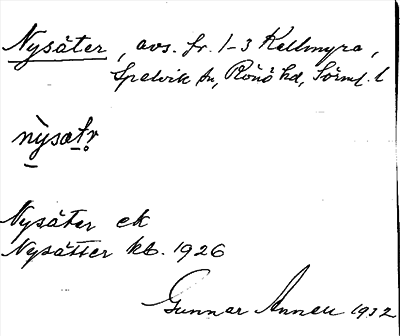 Nysäter, avs. fr. 1-3 Kellmyra,
Spelvik sn, Rönö hd, Sörml. l
nysatr
Nysäter ek
Nysätter kb. 1926
Gunnar 1932